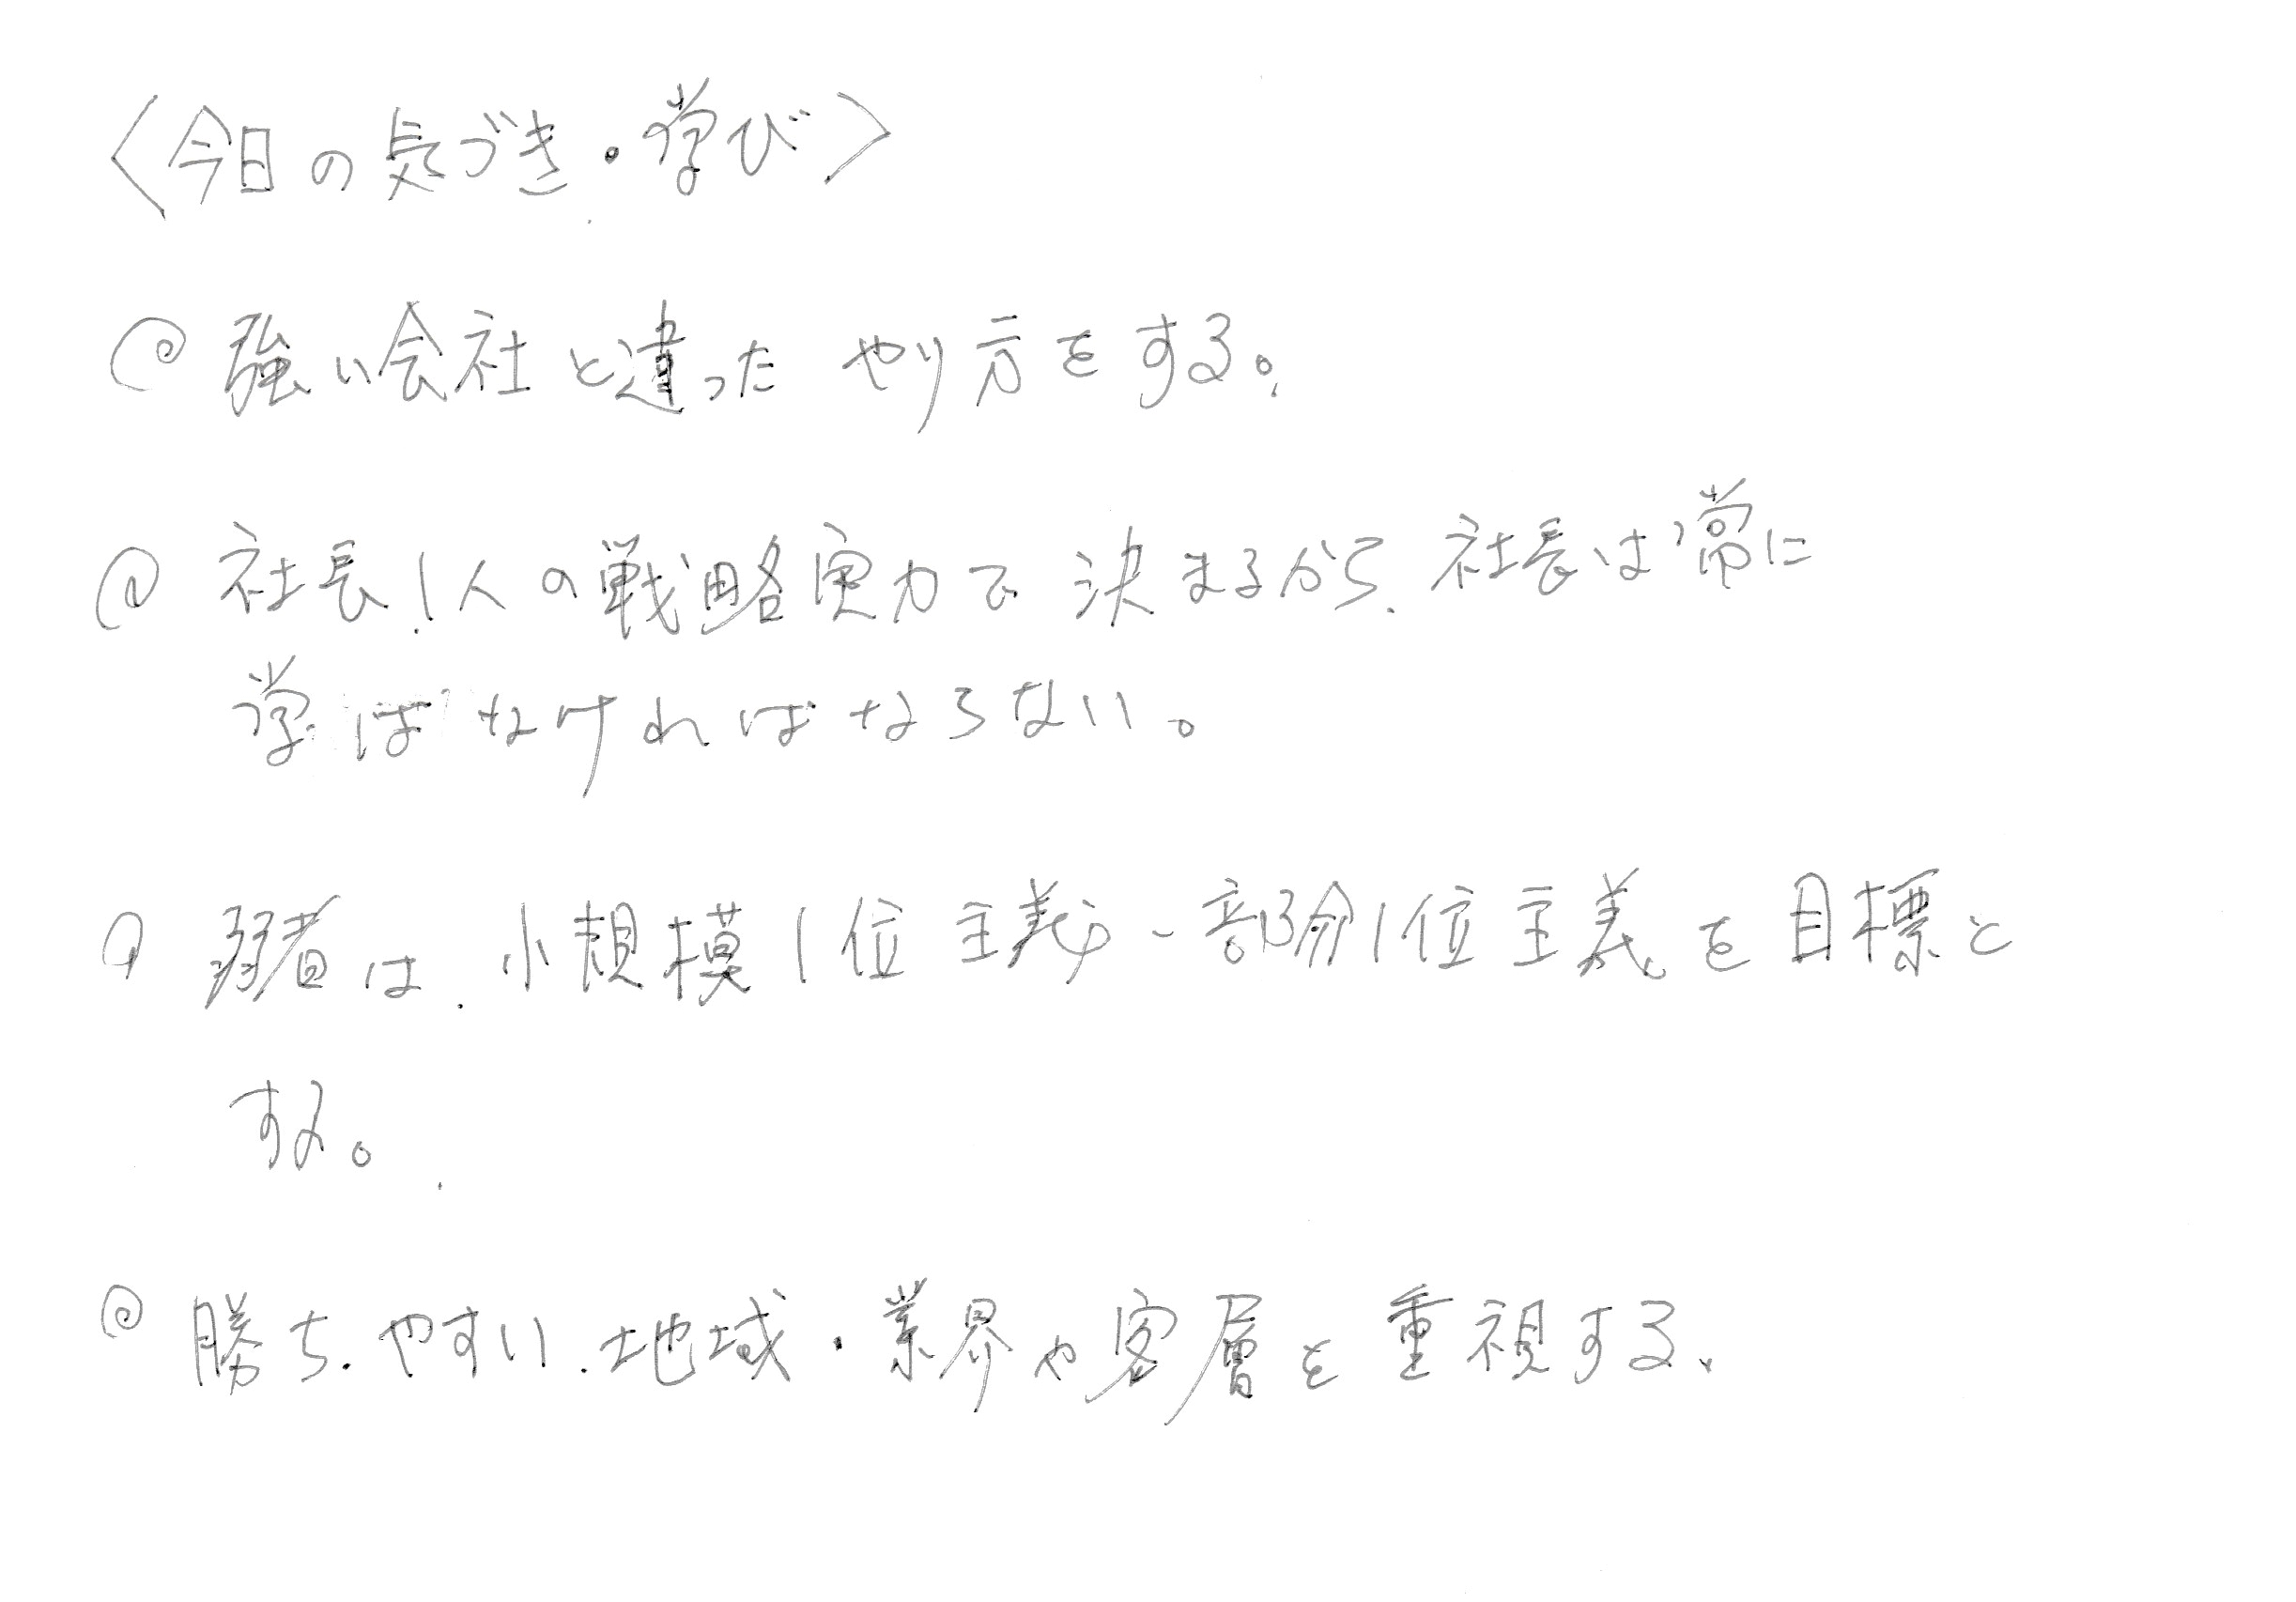 〈今日の気づき・学び〉
◎ 強い会社と違ったやり方をする。
◎ 社長1人の戦略実力で決まるから、社長は常に
学ばなければならない。
◎ 弱者は、小規模1位主義、部分1位主義を目標と
する。
◎ 勝ちやすい地域・業界や客層を重視する、